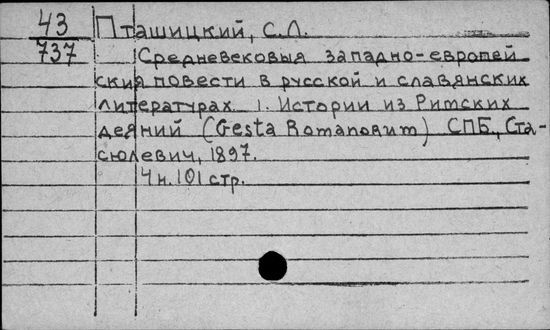 43 Пташицкий, С.Л.
737
Средневековыя западно-европей
ския повести в русской и славянских
литературах. 1. Истории из Римских
деяний (Gesta Romanorum) СПБ, Ста-
сюлевич, 1897.
4 н. 101 стр.